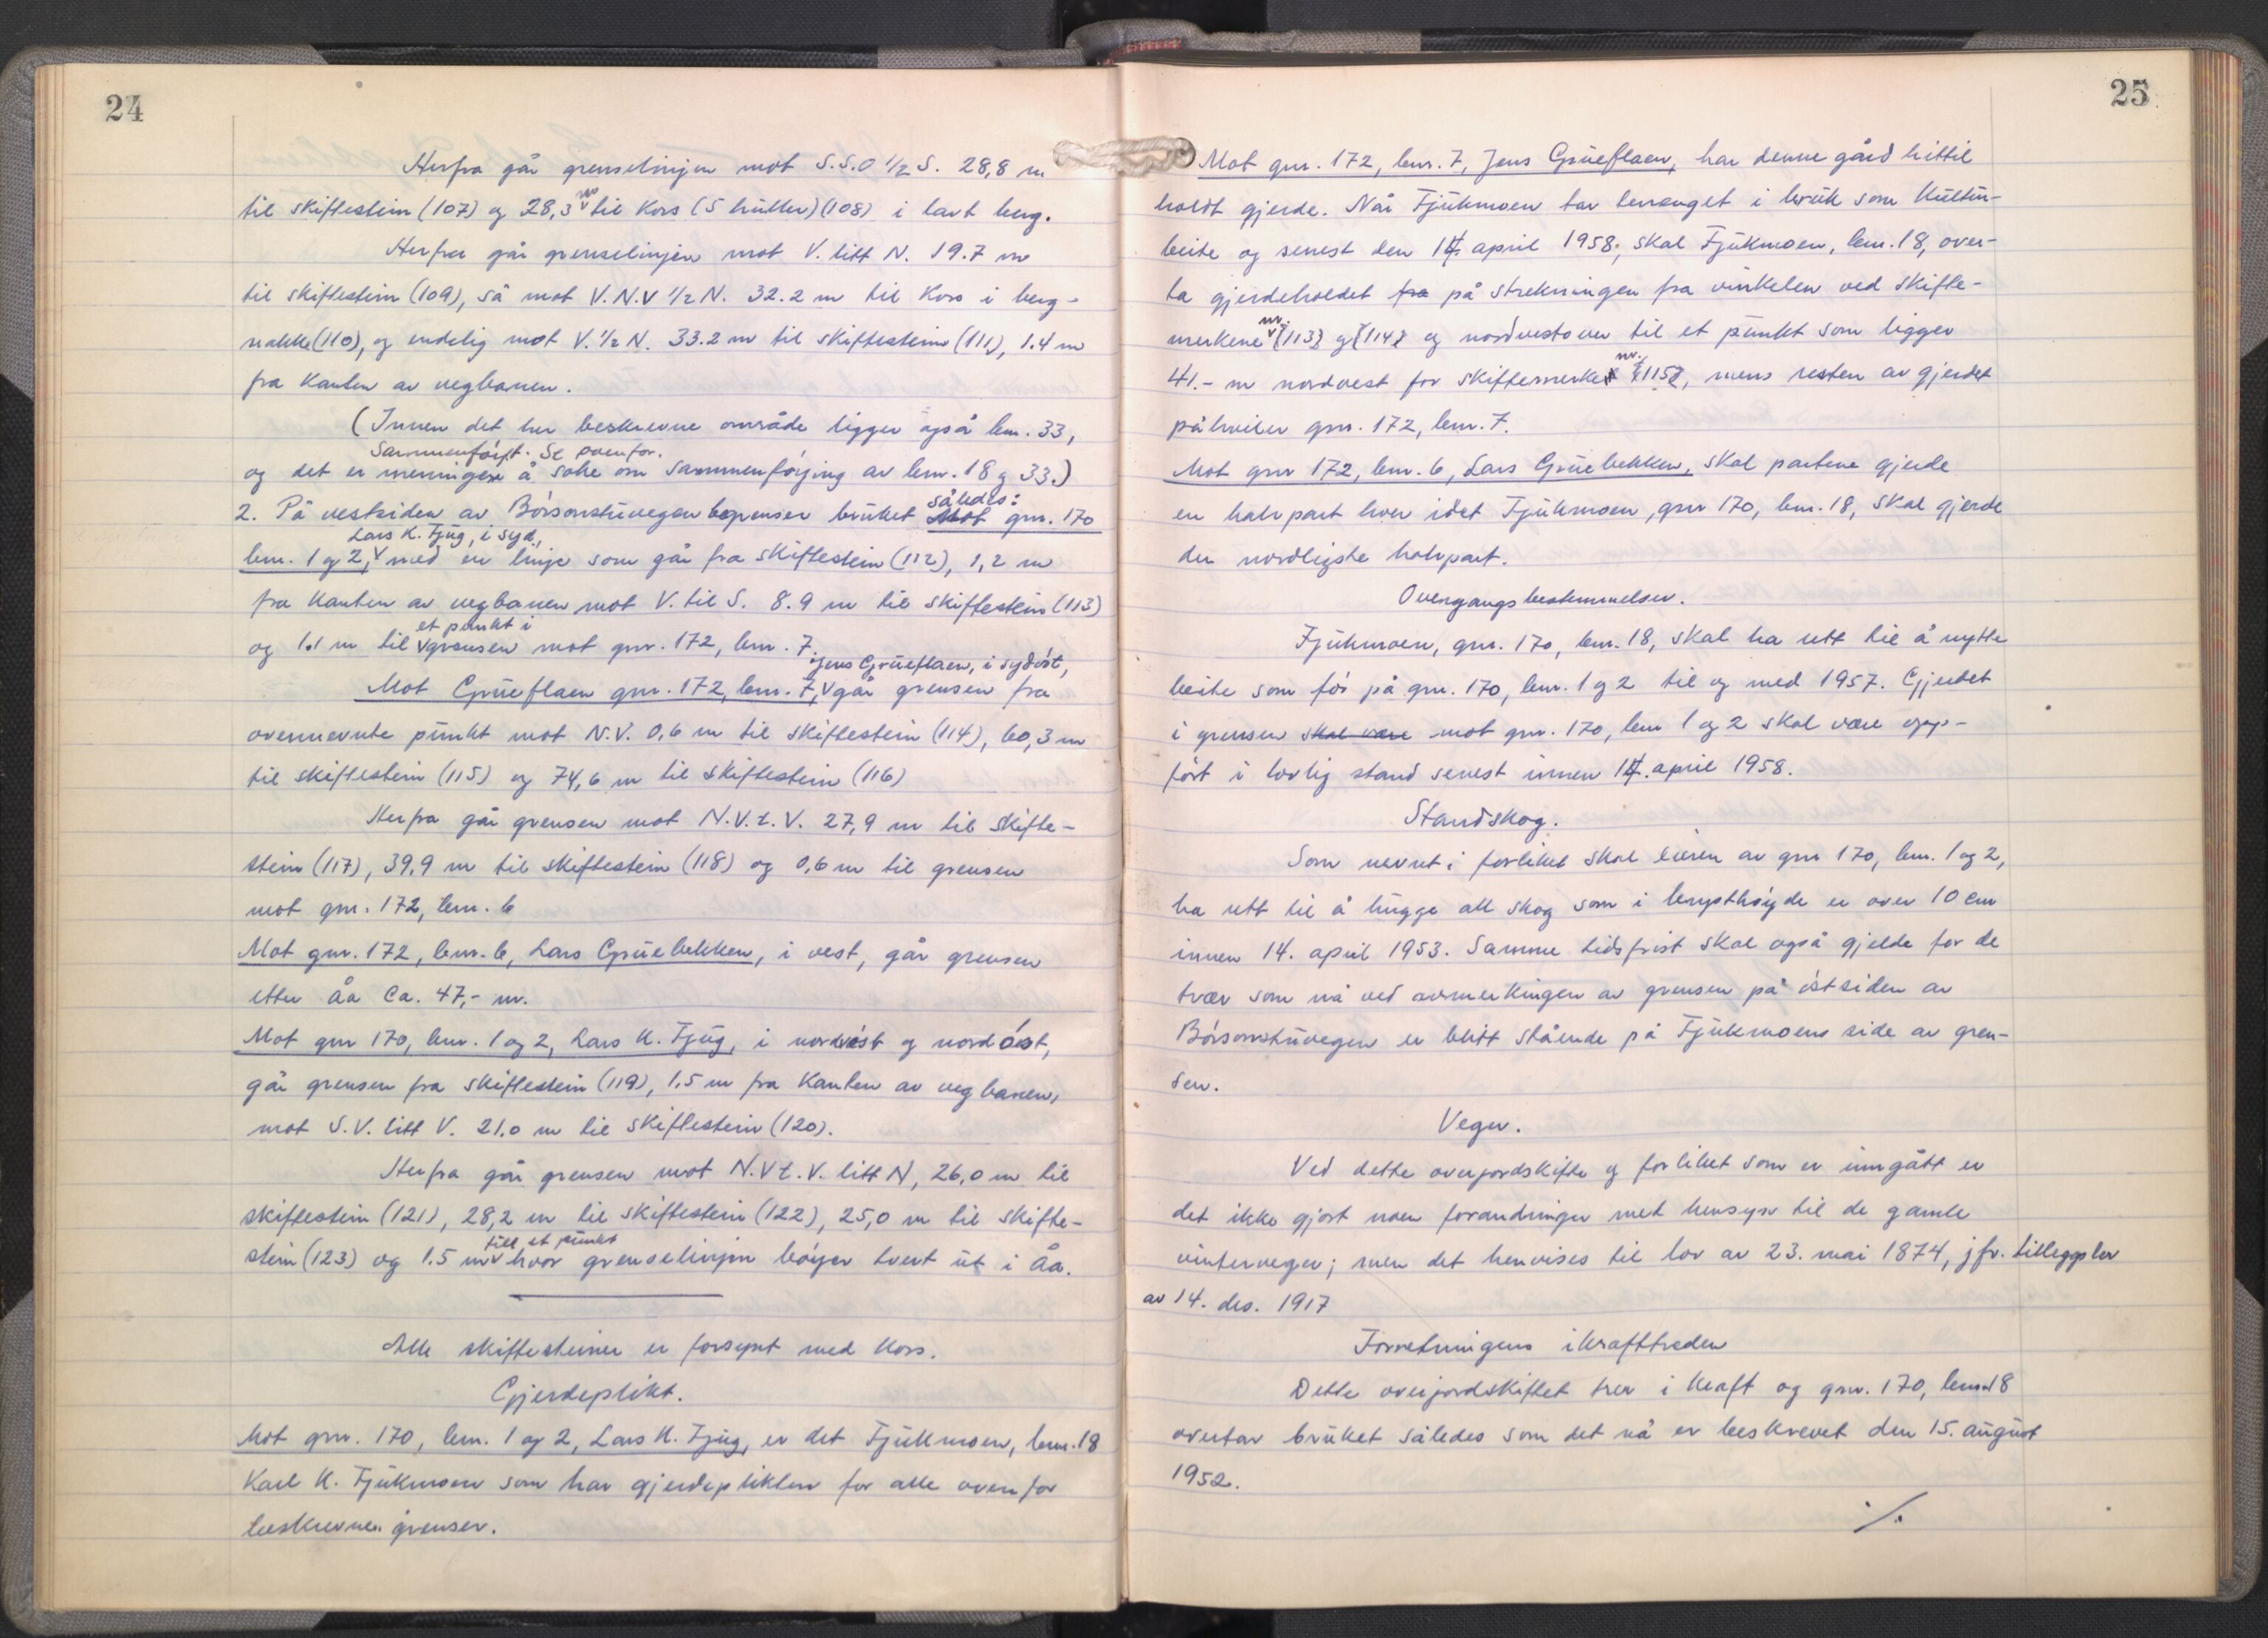 24
Herfra går grenselinjen mot S.S.O ½ S. 28,8 m
til skiftestein (107) og 28,3 m til Kors (5 huller) (108) i lavt berg.
Herfra går grenselinjen mot V. litt N. 19.7 m
til skiftestein (109), så mot V.N.V ½ N. 32.2 m til Kors i berg-
nakke (110), og endelig mot V. ½ N. 33.2 m til skiftestein (111), 1.4 m
fra Kanten av vegbanen.
(Innen det her beskrevne område ligger også bnr. 33,
Sammenføyt. Se ovenfor.
og det er meningen å søke om sammenføying av bnr. 18 og 33.)
2. På vestsiden av Børsonstuvegen begrenser bruket således: Mot gnr. 170
Lars K. Fjug, i syd,
bnr. 1 og 2, med en linje som går fra skiftestein (112), 1,2 m
fra Kanten av vegbanen mot V. til S. 8.9 m til skiftestein (113)
og 1.1 m til et punkt i grensen mot gnr. 172, bnr. 7.
Jens Grueflaen, i sydøst,
Mot Grueflaen gnr. 172, bnr. 7, går grensen fra
ovennevnte punkt mot N.V. 0,6 m til skiftestein (114), 60,3 m
til skiftestein (115) og 74,6 m til skiftestein (116)
Herfra går grensen mot N.V.t.V. 27,9 m til skifte-
stein (117), 39,9 m til skiftestein (118) og 0,6 m til grensen
mot gnr. 172, bnr. 6
Mot gnr. 172, bnr. 6, Lars Gruebekken, i vest, går grensen
etter Åa Ca. 47,- m.
Mot gnr 170, bnr. 1 og 2, Lars K. Fjug, i nordvest og nordøst,
går grensen fra skiftestein (119), 1,5 m fra Kanten av vegbanen,
mot S.V. litt V. 21.0 m til skiftestein (120).
Herfra går grensen mot N.V t.V. litt N, 26,0 m til
skiftestein (121), 28,2 m til skiftestein (122), 25,0 m til skifte-
stein (123) og 1.5 m till et punkt hvor grenselinjen bøyer tvert ut i Åa.
Alle skiftesteiner er forsynt med Kors.
Gjerdeplikt.
Mot gnr. 170, bnr. 1 og 2, Lars K. Fjug, er det Fjukmoen, bnr. 18
Karl K. Fjukmoen som har gjerdeplikten for alle ovenfor
beskrevne grenser.
25
Mot gnr. 172, bnr. 7, Jens Grueflaen, har denne gård hittil
holdt gjerde. Når Fjukmoen tar beranget i bruk som Kultur-
beite og senest den 14. april 1958, skal Fjukmoen, bnr. 18, over-
ta gjerdeholdet fra på strekningen fra vinkelen ved skifte-
merkene nr. (113) og (114) og nordvestover til et punkt som ligger
41.- m nordvest for skiftemerket nr. (115), mens resten av gjerdet
påhviler gnr. 172, bnr. 7.
Mot gnr 172, bnr. 6, Lars Gruebekken, skal partene gjerde
en halvpart hver idet Fjukmoen, gnr 170, bnr. 18, skal gjerde
den nordligste halvpart.
Overgangsbestemmelser.
Fjukmoen, gnr. 170, bnr. 18, skal ha rett til å nytte
beite som før på gnr. 170, bnr. 1 og 2 til og med 1957. Gjerdet
i grensen skal være mot gnr. 170, bnr 1 og 2 skal være opp-
ført i lovlig stand senest innen 14. april 1958.
Standskog.
Som nevnt i forliket skal eieren av gnr 170, bnr. 1 og 2,
ha rett til å hugge all skog som i brysthøyde er over 10 cm
innen 14. april 1953. Samme tidsfrist skal også gjelde for de
trær som nå ved avmerkingen av grensen på østsiden av
Børsonstuvegen er blitt stående på Fjukmoens side av gren-
sen.
Veger.
Ved dette overjordskifte og forliket som er inngått er
det ikke gjort noen forandringer med hensyn til de gamle
vinterveger; men det henvises til lov av 23. mai 1874, jfr. tilleggslov
av 14. des. 1917
Forretningens ikrafttreden
Dette overjordskiftet trer i Kraft og gnr. 170, bnr. 18
overtar bruket således som det nå er beskrevet den 15. august
1952.
./.